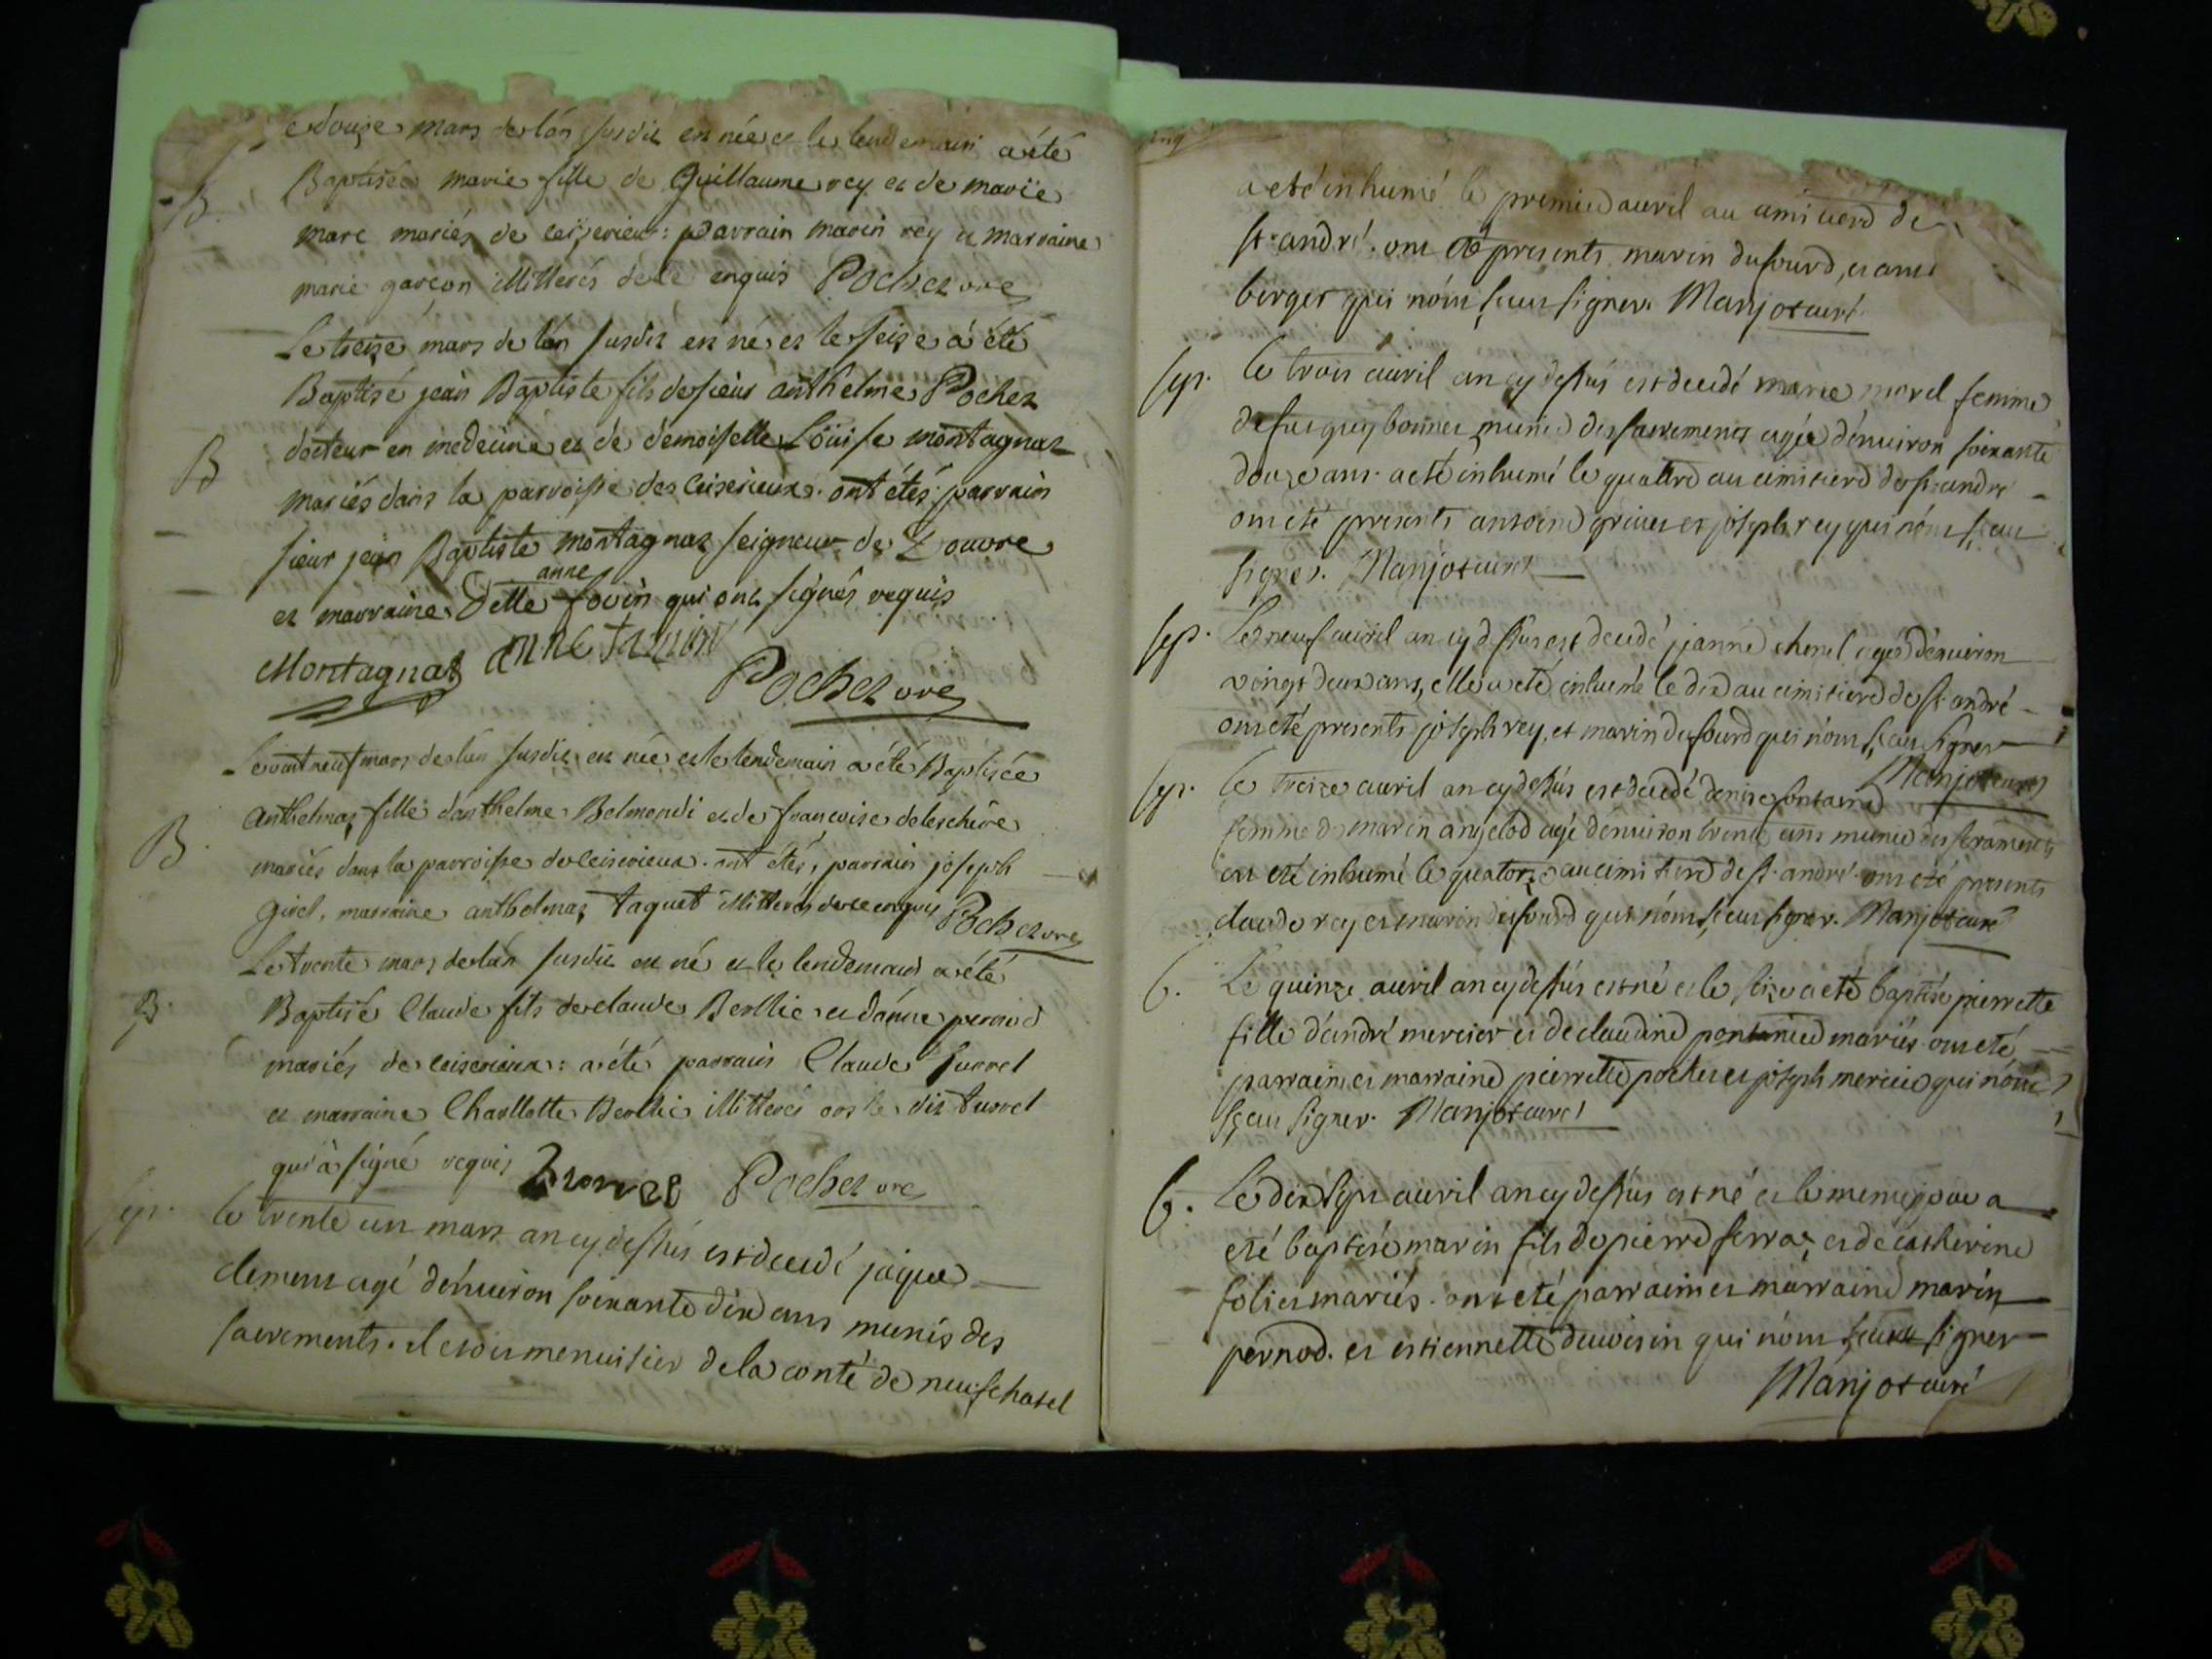 e douze mars de l'an susdit est née et le lendemain a été
B. Baptisée marie fille de Guillaume rey et de marie
marc mariés de ceizerieux: parrain marin rey et marraine
marie garçon illitterés de ce enquis Pochet vre
Le treize mars de l'an susdit est né et le seize a été
Baptisé jean Baptiste fils de sieur anthelme Pochet
B docteur en medecine et de demoiselle Loüise montagnat
mariés dans la parroisse de ceiserieux. ont étés parrain
sieur jean Baptiste montagnat seigneur de Louvre
anne
et marraine Delle fovin qui ont signés requis
Montagnat anne
Pochet vre
Le vint neuf mars de l'an susdit est née et le lendemain a été Baptisée
Anthelmaz fille d'anthelme Belmondi et de francoise deleschère
B. mariés dans la parroisse de ceiserieux. ont étés, parrain joseph
givel, marraine anthelmaz taquet illitterés de ce enquis Pochet vre
Le trente mars de l'an susdit est né et le lendemain a été
B. Baptisé Claude fils de claude Berllie et d'anne pernod
mariés de ceiserieux: a été parrain Claude turrel
et marraine Charllotte Berllie illitterés ors le dit turrel
qui a signé requis Pochet vre
sep. le trente un mars an cy dessus est decedé jaque
clement agé d'environ soixante dix ans munis des
sacrements. il etoit menuisier de la conté de neufchatel
a eté inhumé le premier avril au cimitierd de
st. andré. ont eté presents marin dufourd, et
berger qui n'ont sceu signer. Manjot curé
sep. le trois avril an cy dessus est decedé marie morel femme
de fut guy bonnet munie des sacrements agée d'environ soixante
douze ans. a eté inhumé le quattre au cimitierd de st. andré
ont eté presents antoine et joseph rey qui n'ont sceu
signer. Manjot curé
sep. Le neuf avril an cy dessus est decedé janne agée d'environ
vingt deux ans, elle a eté inhumé le dix au cimitierd de st. andré
ont eté presents joseph rey, et marin dufourd qui n'ont sceu signer
Manjot curé
sep. le treize avril an cy dessus est decedé denise fontaine
femme de marin angelod agé d'environ trente ans munie des sacraments
a eté inhumé le quatorze au cimitierd de st. andré. ont eté presents
claude rey et marin dufourd qui n'ont sceu signer. Manjot curé
b. Le quinze avril an cy dessus est né et le seize a eté baptisé pierrette
fille d'andré mercier et de claudine mariés. ont eté
parrain et marraine pierrette pochet et joseph mercier qui n'ont
sceu signer. Manjot curé
b. Le dix sept avril an cy dessus est né et le meme jour a
eté baptisé marin fils de pierre ferraz, et de catherine
foliet mariés. ont eté parrain et marraine marin
pernod. et estiennette qui n'ont sceu signer
Manjot curé